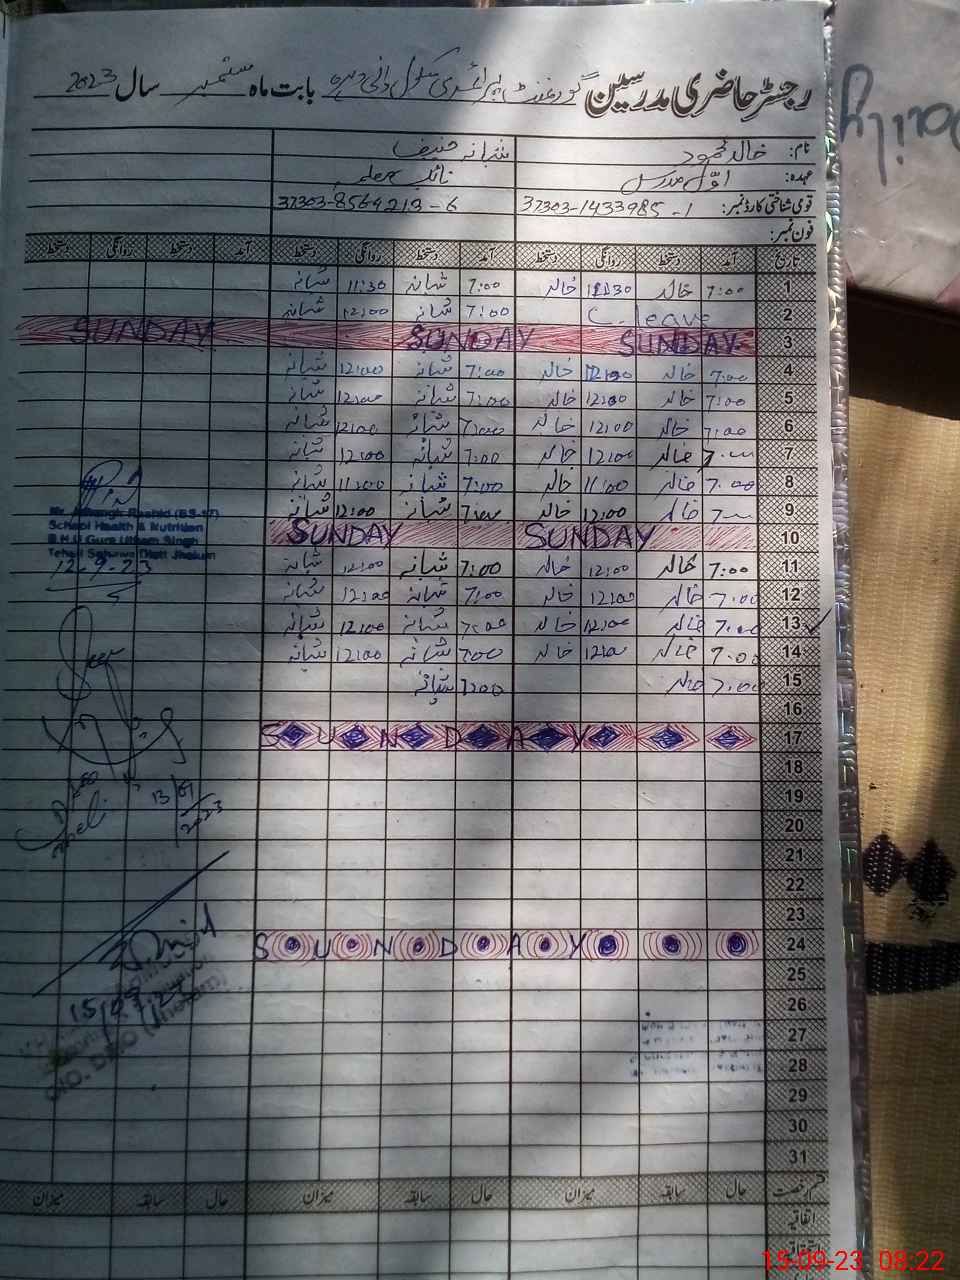 رجسٹر حاضری مدرسین گورنمنٹ پرائمری سکول بابت ماہ ستمبر سال 2023
نام: خالد محمود شبانہ حنیف
عہدہ: اوّل مدرس نائب معلمہ
قومی شناختی کارڈ نمبر: 37303-1433985-1 37303-8564213-6
فون نمبر:
تاریخ آمد دستخط روانگی دستخط آمد دستخط روانگی دستخط آمد دستخط روانگی دستخط
1 7:00 خالد 11:30 خالد 7:00 شبانہ 11:30 شبانہ
2 C.leave 7:00 شبانہ 12:00 شبانہ
3 SUNDAY SUNDAY SUNDAY
4 7:00 خالد 12:00 خالد 7:00 شبانہ 12:00 شبانہ
5 7:00 خالد 12:00 خالد 7:00 شبانہ 12:00 شبانہ
6 7:00 خالد 12:00 خالد 7:00 شبانہ 12:00 شبانہ
7 7:00 خالد 12:00 خالد 7:00 شبانہ 12:00 شبانہ
8 7:00 خالد 11:00 خالد 7:00 شبانہ 11:00 شبانہ
9 7:00 خالد 12:00 خالد 7:00 شبانہ 12:00 شبانہ
10 SUNDAY SUNDAY
11 7:00 خالد 12:00 خالد 7:00 شبانہ 12:00 شبانہ
12 7:00 خالد 12:00 خالد 7:00 شبانہ 12:00 شبانہ
13 7:00 خالد 12:00 خالد 7:00 شبانہ 12:00 شبانہ
14 7:00 خالد 12:00 خالد 7:00 شبانہ 12:00 شبانہ
15 7:00 خالد 7:00 شبانہ
16
17 SUNDAY
18
19
20
21
22
23
24 SUNDAY
25
26
27
28
29
30
31
قسم رخصت حال سابقہ میزان حال سابقہ میزان حال سابقہ میزان
اتفاقیہ
استحقاقیہ
Rashid (BS-17)
School Health & Nutrition
B.H.U Gura Uttam Singh
Tehsil Sohawa Distt Jhelum
12-9-23
13/9/2023
15/09/23
Daily
15-09-23 08:22